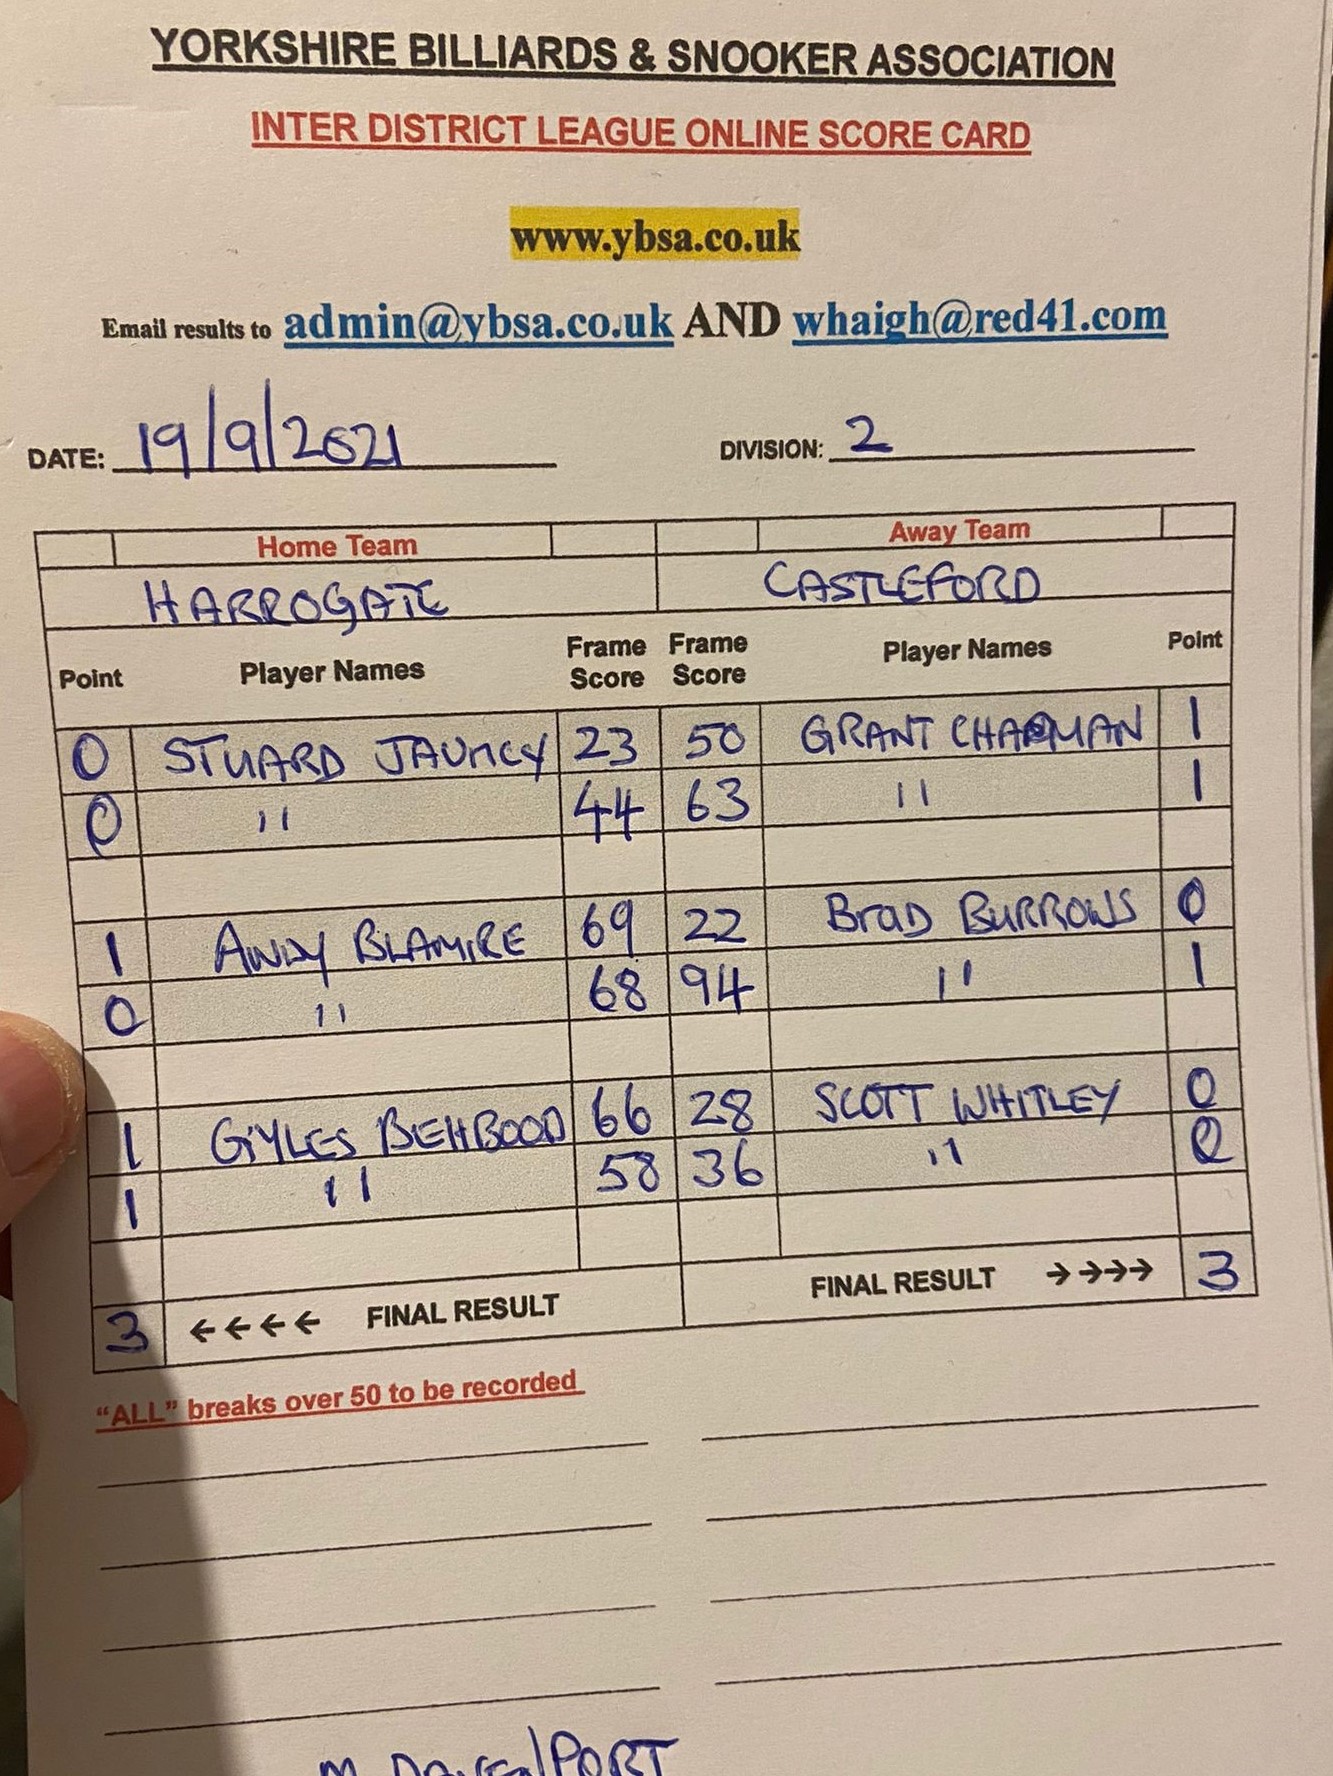 YORKSHIRE BILLIARDS & SNOOKER ASSOCIATION
INTER DISTRICT LEAGUE ONLINE SCORE CARD
www.ybsa.co.uk
Email results to admin@ybsa.co.uk AND whaigh@red41.com
DATE: 19/9/2021 DIVISION: 2
Home Team Away Team
HARROGATE CASTLEFORD
Point Player Names Frame Score Frame Score Player Names Point
0 STUARD JAUNCY 23 50 GRANT CHAPMAN 1
0 " 44 63 " 1
1 ANDY BLAMIRE 69 22 Brad BURROWS 0
0 " 68 94 " 1
1 GYLES BEHBOOD 66 28 SCOTT WHITLEY 0
1 " 58 36 " 0
3 ←←←← FINAL RESULT FINAL RESULT →→→→ 3
"ALL" breaks over 50 to be recorded
M